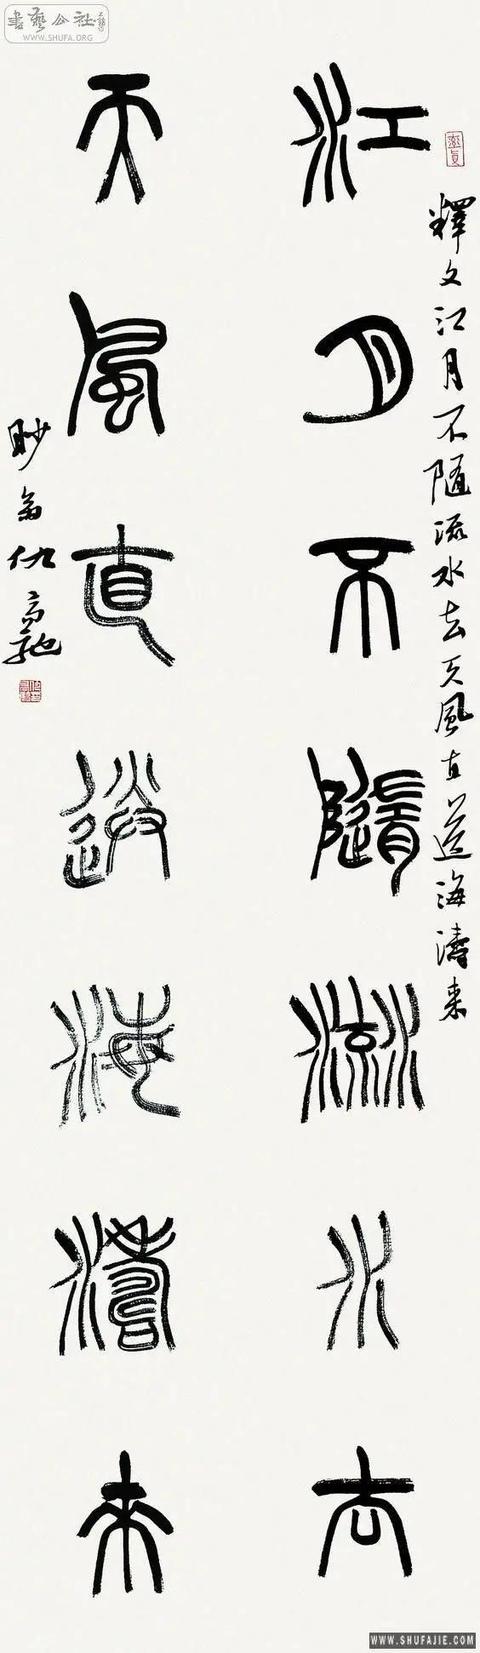 江月不隨流水去
天風直送海濤來
釋文江月不隨流水去天風直送海濤來
眇翁仇高馳
書藝公社
WWW.SHUFA.ORG
WWW.SHUFAJIE.COM